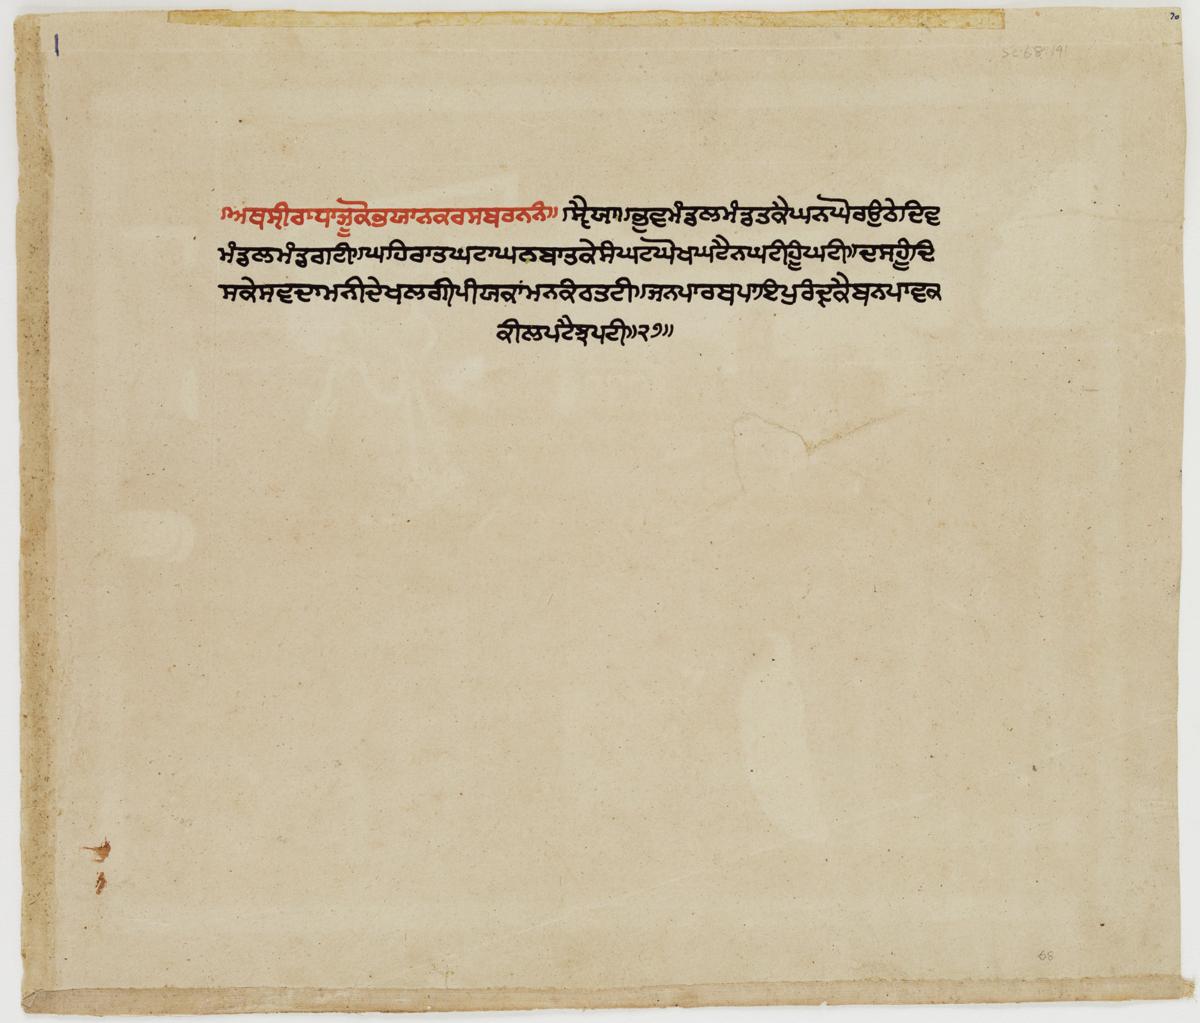 70
SC 68:191
॥ਅਥਸ੍ਰੀਰਾਧਾਜੂਕੋਭਯਾਨਕਰਸਬਰਨਨੰ॥ ॥ਸ੍ਵੈਯਾ॥ਭੂਵਮੰਡੁਲਮੰਡੁਤਕੈਘਨਘੋਰਉਠੇਦਿਵ
ਮੰਡੁਲਮੰਡੁਗਟੀ॥ਘਹਿਰਾਤਘਟਾਘਨਬਾਤਕੇਸੰਿਘਟਘੋਖਘਟੈਨਘਟੀਹੂੰਿਘਟੀ॥ਦਸਹੂੰਦਿ
ਸਕੇਸਵਦਾਮਨੀਦੇਖਲਗੀਪੀਯਕਾਂਮਨਕੰਿਠਤਟੀ॥ਜਨਪਾਰਥਪਾਇਪੁਰੰਿਦ੍ਰਕੈਬਨਪਾਵਕ
ਕੀਲਪਟੈਝਪਟੀ॥੨੭॥
68